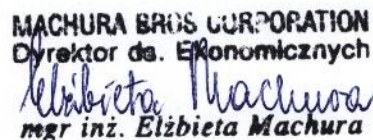 MACHURA BROS CORPORATION
Dyrektor ds. Ekonomicznych
Elżbieta Machura
mgr inż. Elżbieta Machura